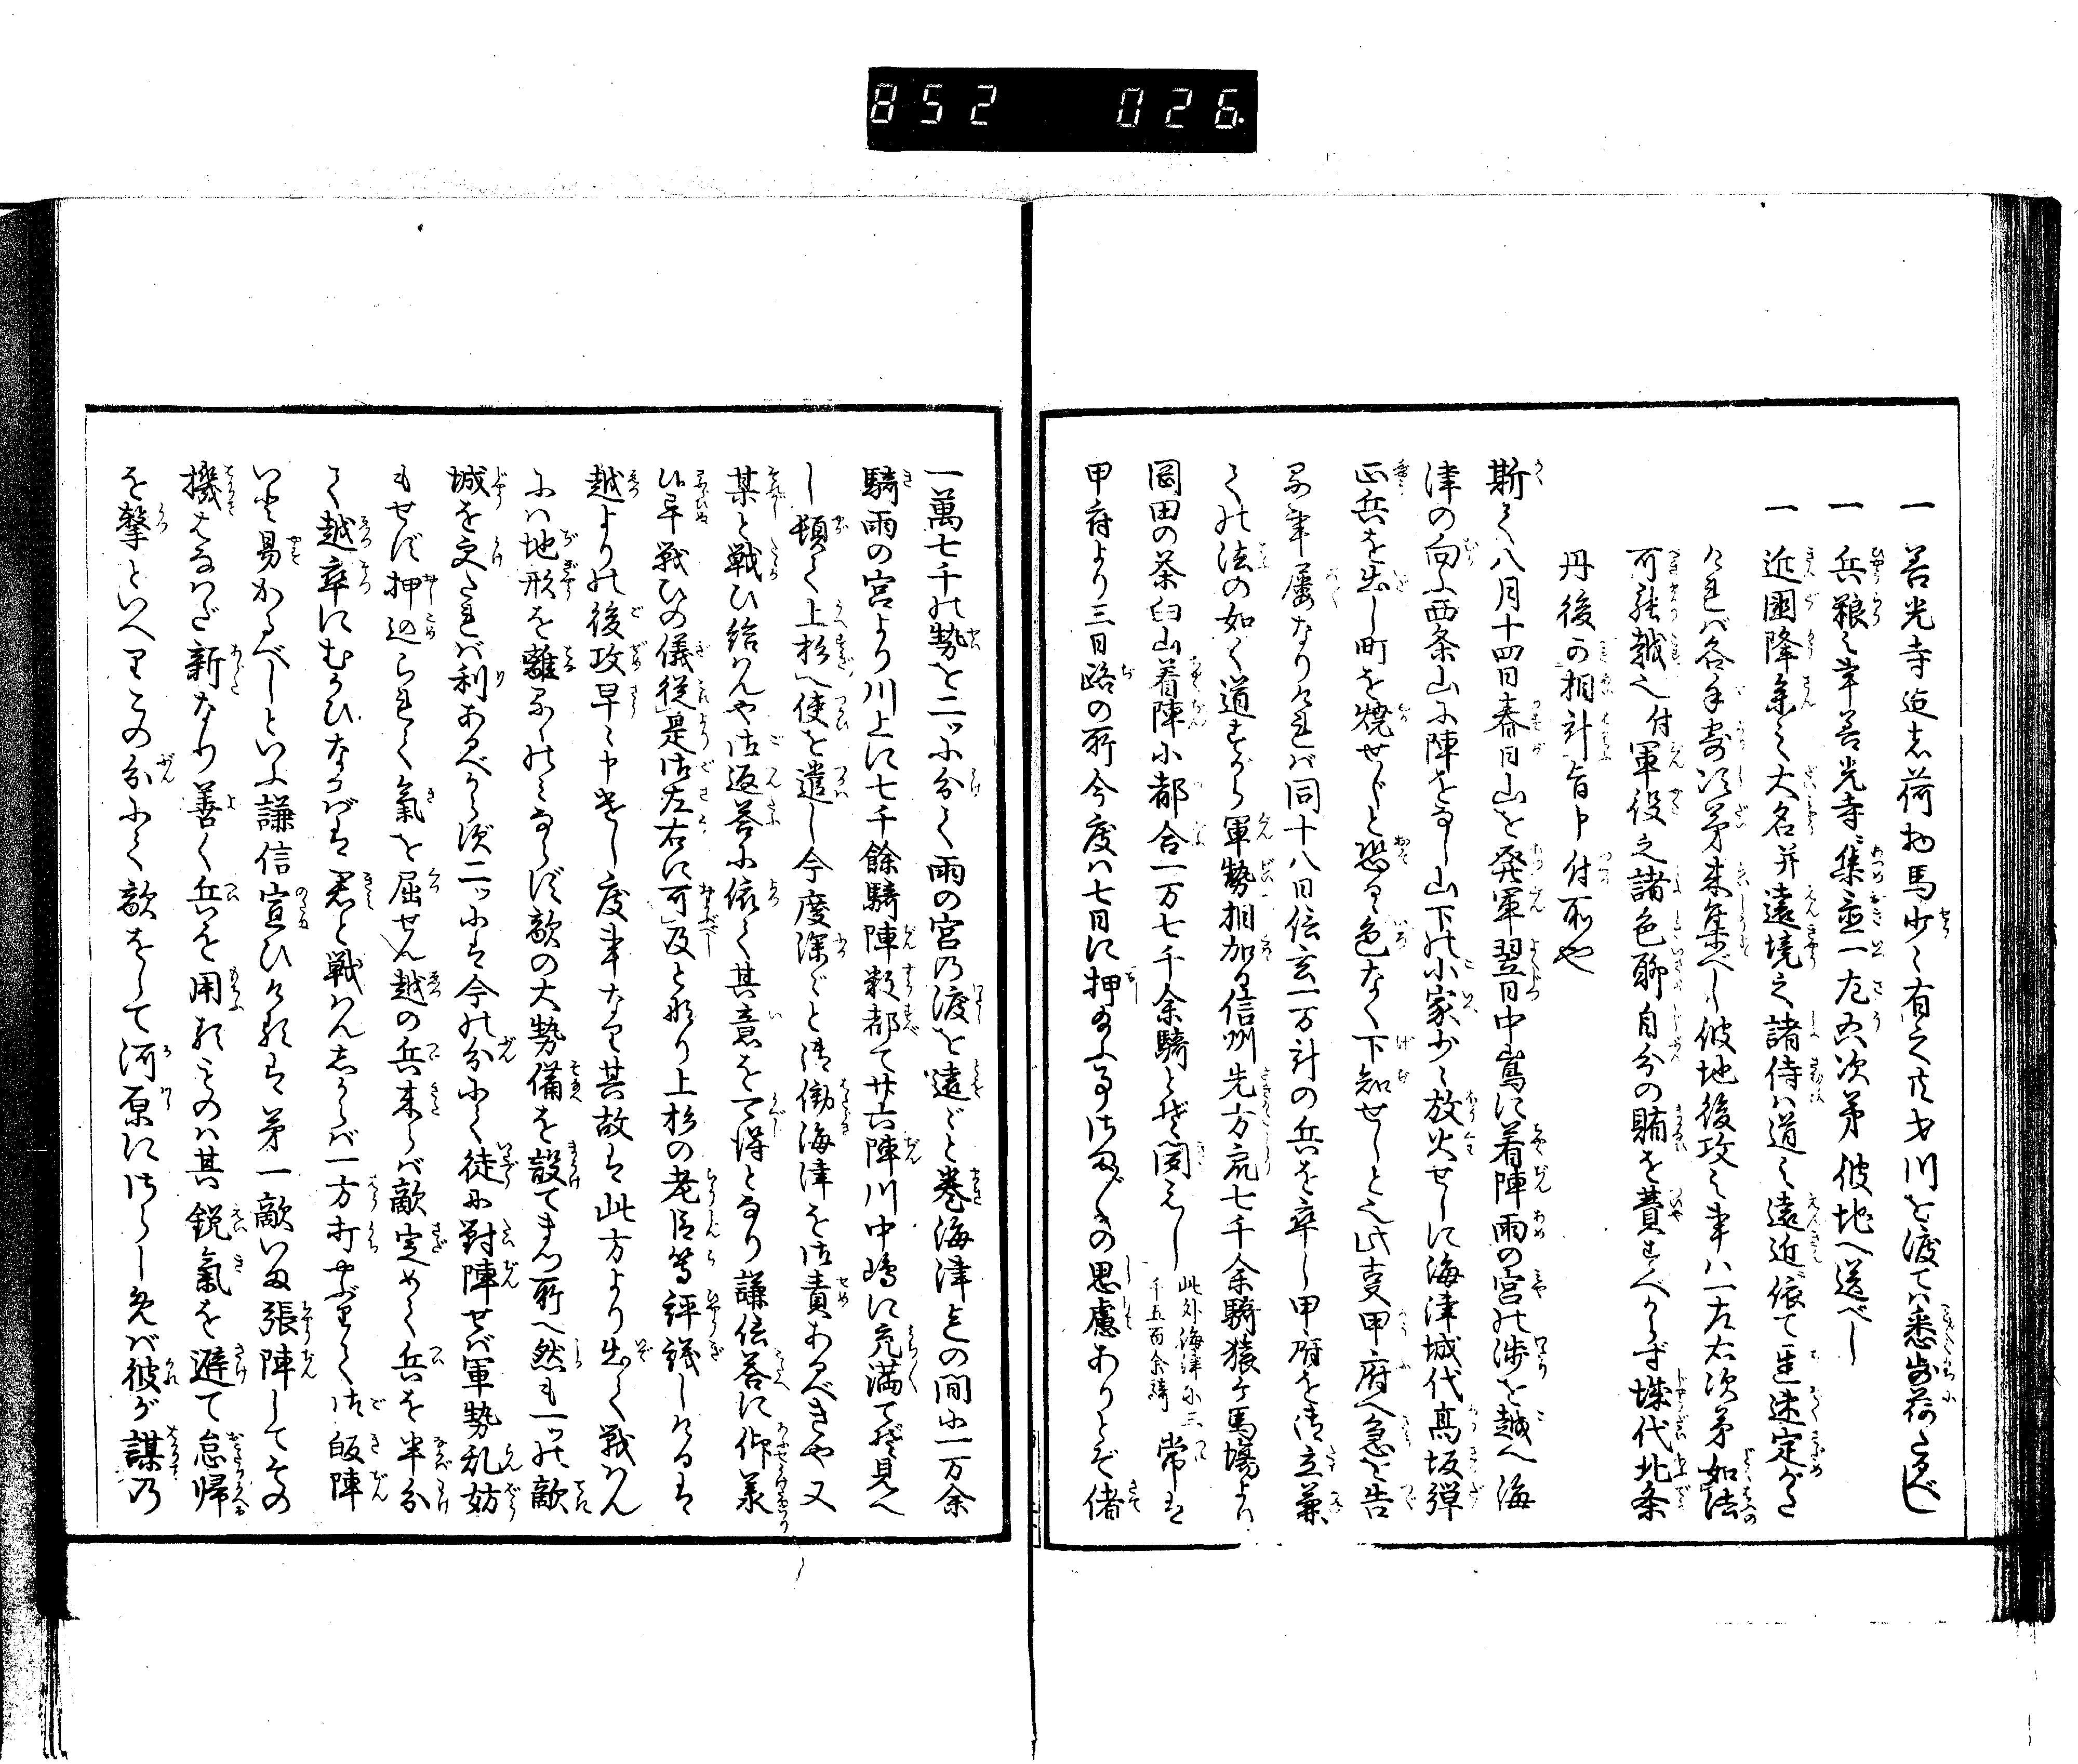 852 026
一 善光寺迄志荷物馬少々有之共才川を渡てハ悉歩荷たるべし
一 兵粮之事善光寺ニ集置一左右次第彼地へ送べし
一 近國降参之大名并遠境之諸侍ハ道之遠近依て遅速定がた
けれバ各手寄次第来集べし彼地後攻之事ハ一左右次第如法
可能越之付軍役之諸色聊自分の賄を費すべからず城代北条
丹後可相計旨申付所也
斯て八月十四日春日山を発軍翌日中嶌に着陣雨の宮の渉を越へ海
津の向ふ西条山に陣をなし山下の小家少々放火せしに海津城代高坂弾
正兵を出し町を焼せじと恐るゝ色なく下知せしと之此吏甲府へ急を告
る事屢なりけれバ同十八日信玄一万計の兵を率し甲府を御立兼
ての法の如く道すがら軍勢相加る信州先方衆七千余騎猿ヶ馬場より
岡田の茶臼山着陣に都合一万七千余騎とぞ聞えし 此外海津に三千五百余騎 常は
甲府より三日路の所今度ハ七日に押るゝ事謀の思慮ありとぞ偖
一萬七千の勢を二ツに分て雨の宮乃渡を遠ごと巻海津との間に一万余
騎雨の宮より川上に七千餘騎陣數都て廿六陣川中嶋に充満てぞ見へ
し頓て上杉へ使を遣し今度深々と御働海津を御責あるべきや又
某と戦ひ給はんや御返答に依て其意を可得となり謙信答に仰承
候畢戦ひの儀従是御左右に可及と有り上杉の老臣等評議しけるは
越よりの後攻早々申遣し度事なり其故は此方より出て戦はん
にハ地形を離るゝのミならず敵の大勢備を設てまつ所へ然も一ツの敵
城を交たれバ利あるべからず二ツには今の分にて徒に對陣せバ軍勢乱妨
もせず押込られて氣を屈せん越の兵来らバ敵定めて兵を半分
て越率にむかひなうバは君と戦はんしからバ一方打やぶりて御皈陣
いと易かるべしといふ謙信宣ひけるは第一敵いま張陣してその
機はなはだ新なり善く兵を用るものハ其鋭氣を避て怠帰
を撃といへりこの分にて敵をして河原にけらしめバ彼が謀乃